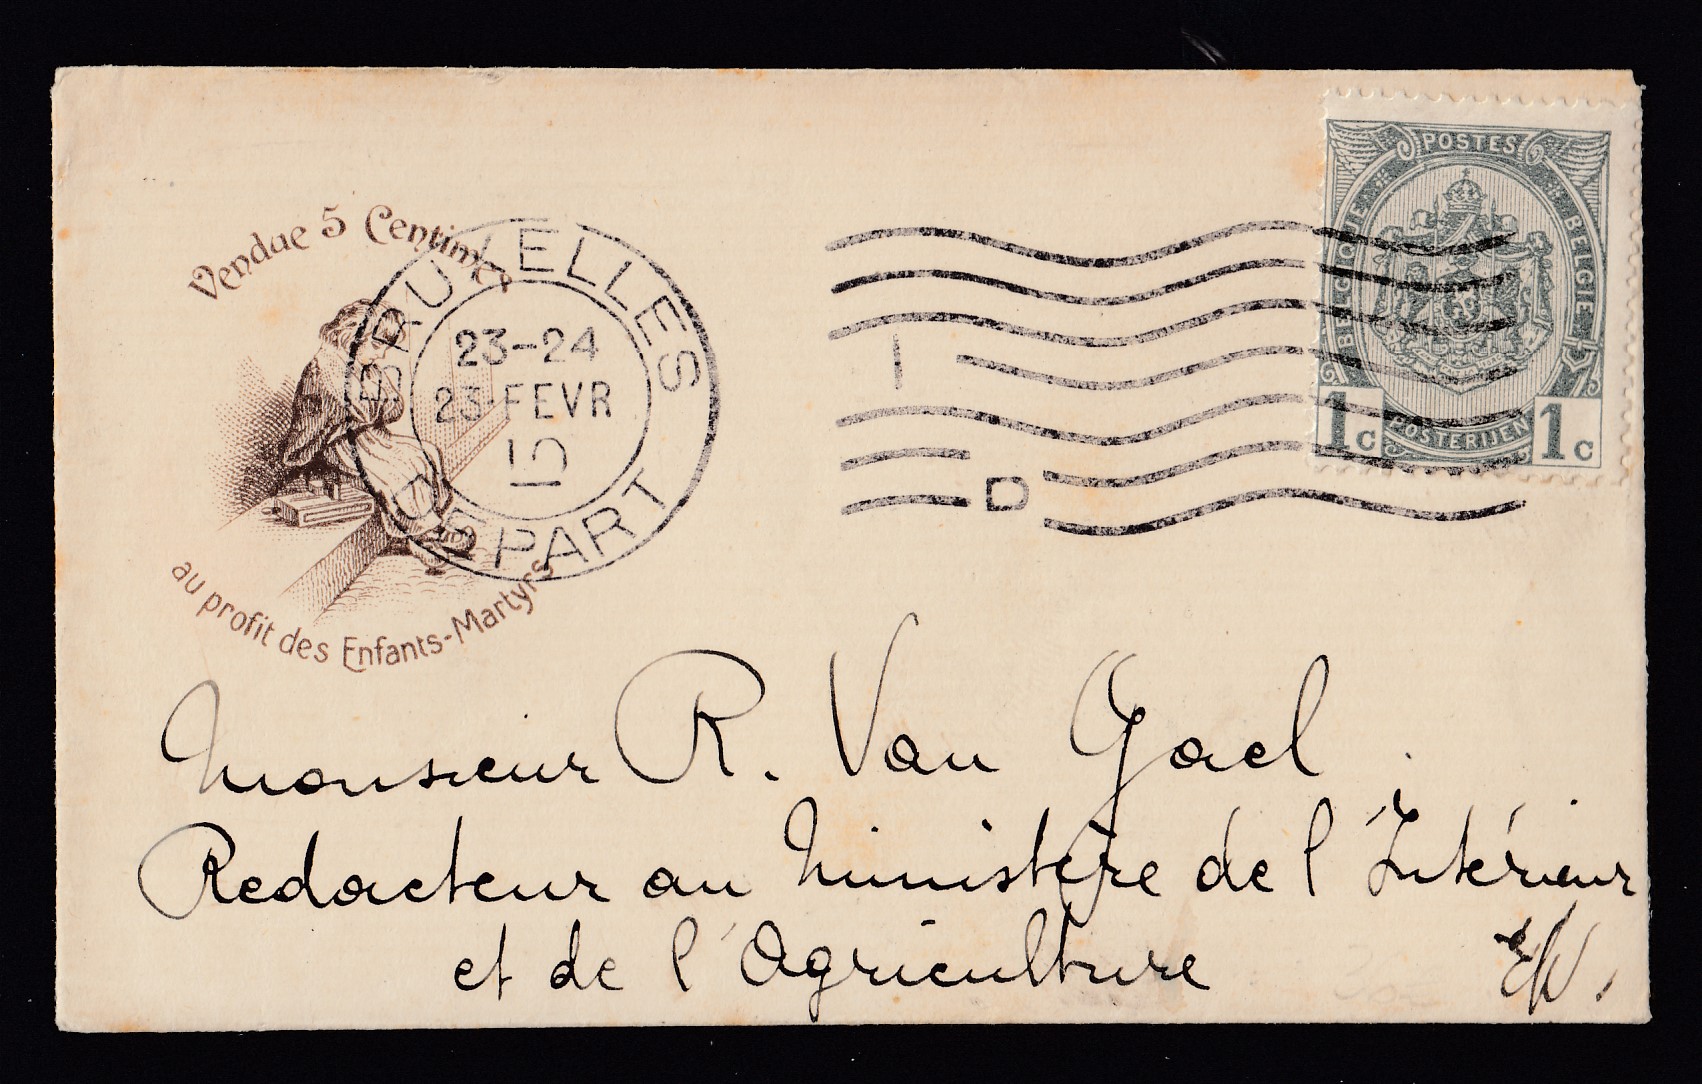 Vendue 5 Centimes
au profit des Enfants-Martyrs
BRUXELLES
23-24
23 FEVR
DEPART
I
D
POSTES
BELGIQUE
BELGIE
POSTERIJEN
1c
1c
Monsieur R. Van Gael
Redacteur au Ministère de l'Intérieur
et de l'Agriculture
E/V.